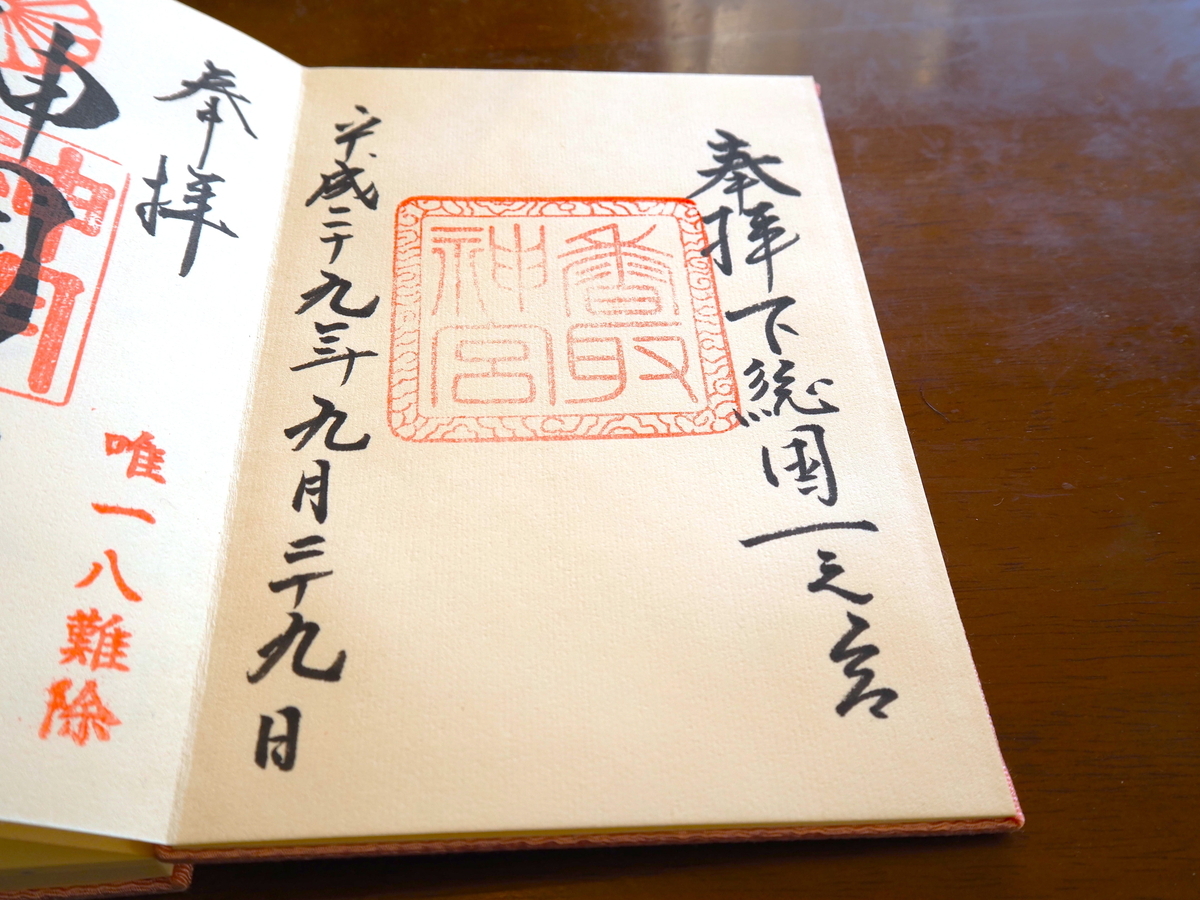 奉拝 下総国一之宮
香取
神宮
平成二十九年九月二十九日
奉拝
唯一八難除